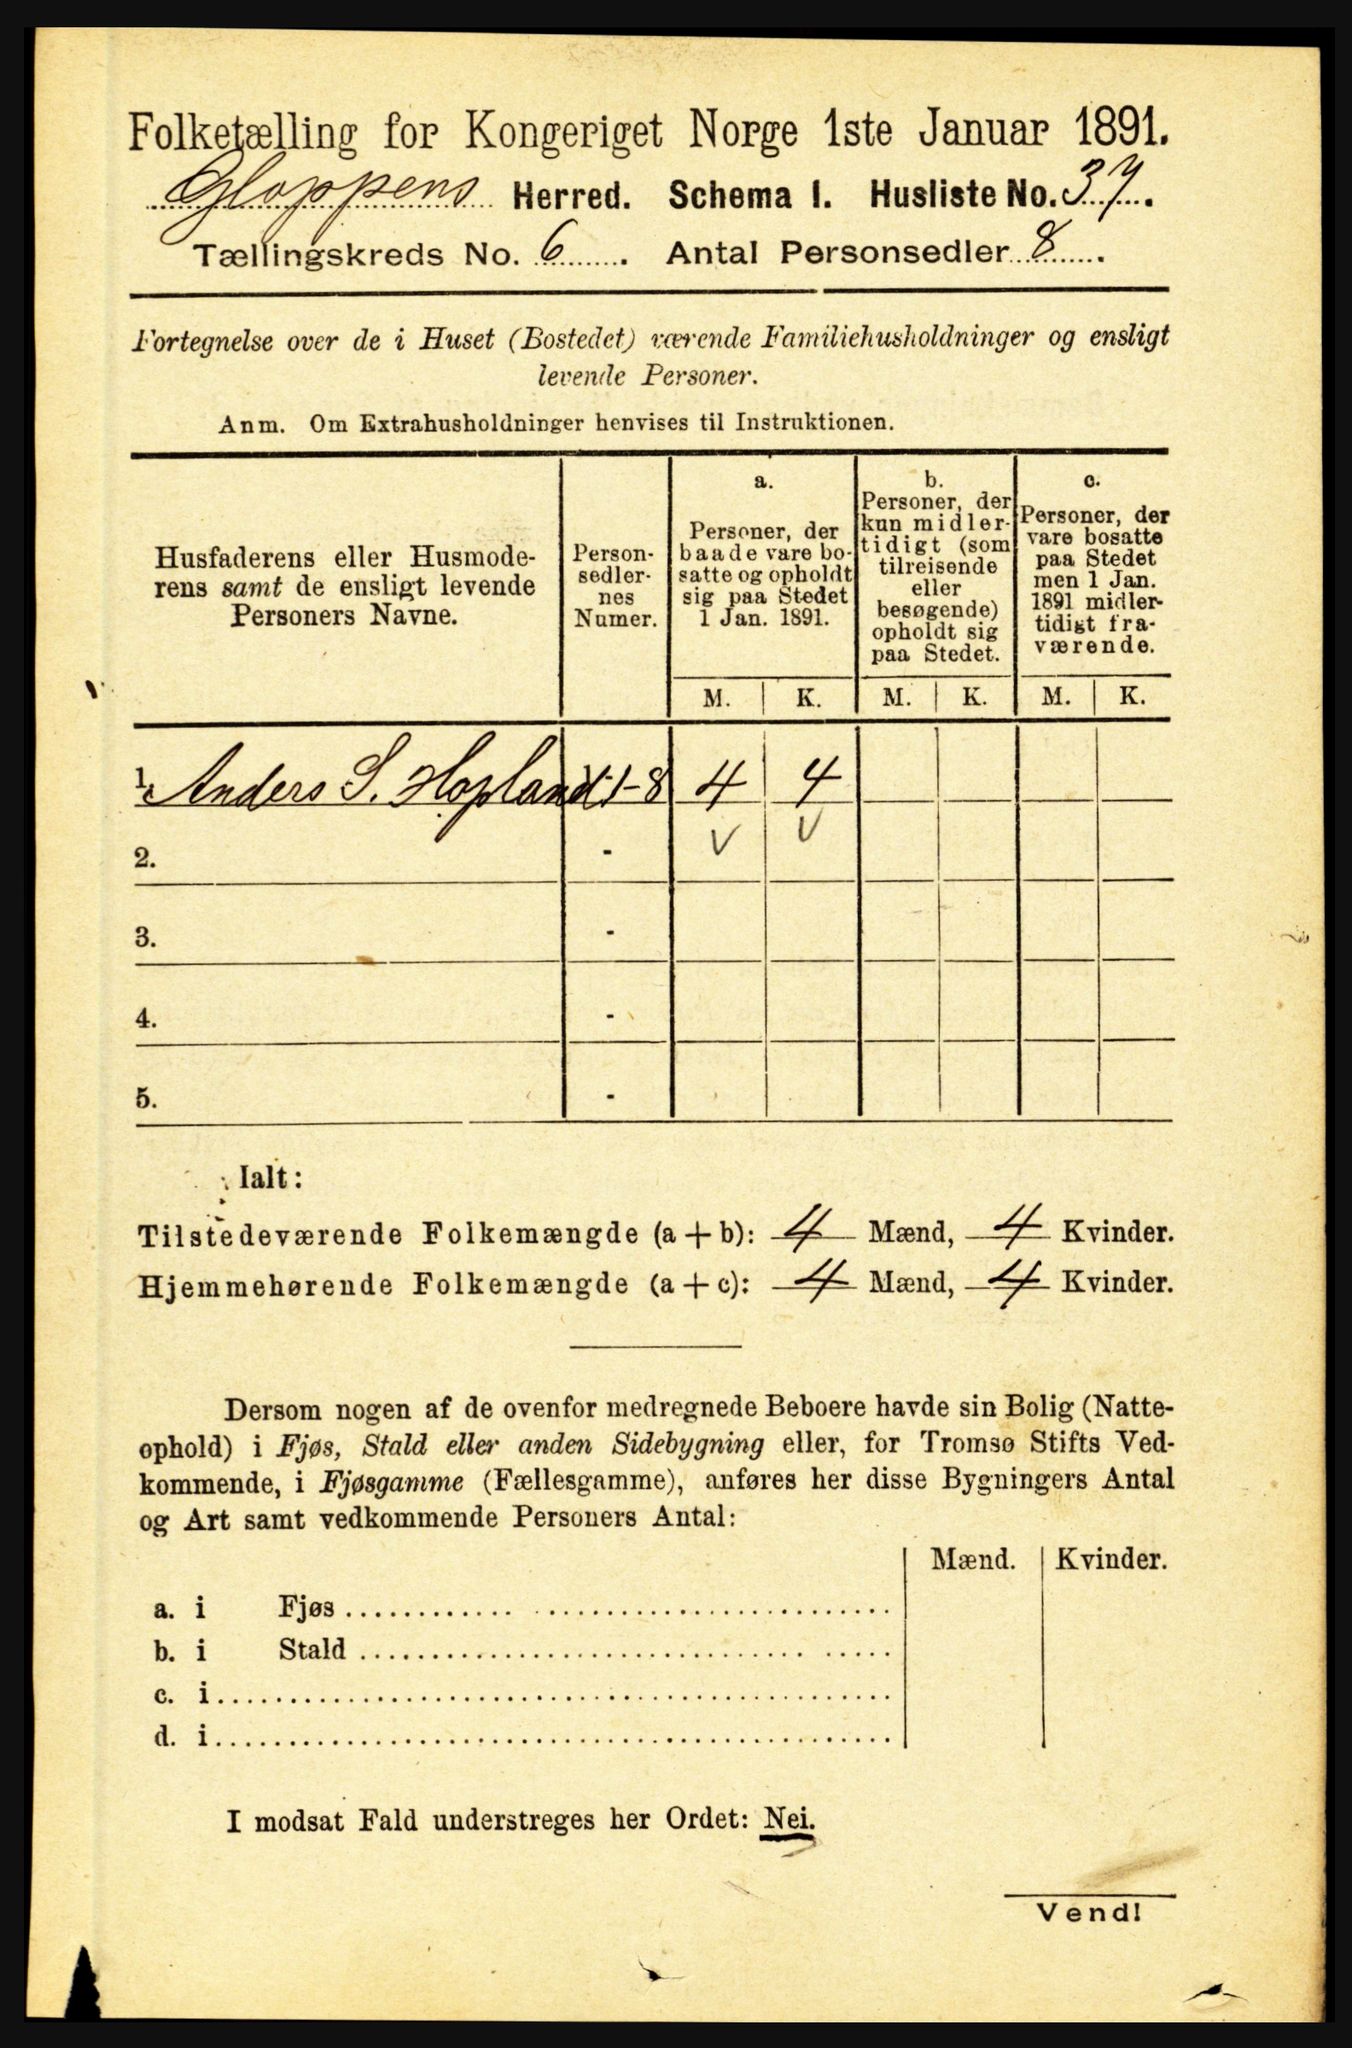 Folketælling for Kongeriget Norge 1ste Januar 1891.
Gloppens Herred. Schema I. Husliste No. 37.
Tællingskreds No. 6. Antal Personsedler 8.
Fortegnelse over de i Huset (Bostedet) værende Familiehusholdninger og ensligt
levende Personer.
Anm. Om Extrahusholdninger henvises til Instruktionen.
Husfaderens eller Husmode-
rens samt de ensligt levende
Personers Navne.
Person-
sedler-
nes
Numer.
a.
Personer, der
baade vare bo-
satte og opholdt
sig paa Stedet
1 Jan. 1891.
b.
Personer, der
kun midler-
tidigt (som
tilreisende
eller
besøgende)
opholdt sig
paa Stedet.
c.
Personer, der
vare bosatte
paa Stedet
men 1 Jan.
1891 midler-
tidigt fra-
værende.
M. K. M. K. M. K.
1. Anders S. Hopland 1-8 4 4
2. -
3. -
4. -
5. -
Ialt:
Tilstedeværende Folkemængde (a + b): 4 Mænd, 4 Kvinder.
Hjemmehørende Folkemængde (a + c): 4 Mænd, 4 Kvinder.
Dersom nogen af de ovenfor medregnede Beboere havde sin Bolig (Natte-
ophold) i Fjøs, Stald eller anden Sidebygning eller, for Tromsø Stifts Ved-
kommende, i Fjøsgamme (Fællesgamme), anføres her disse Bygningers Antal
og Art samt vedkommende Personers Antal:
Mænd. Kvinder.
a. i Fjøs
b. i Stald
c. i
d. i
I modsat Fald understreges her Ordet: Nei.
Vend!